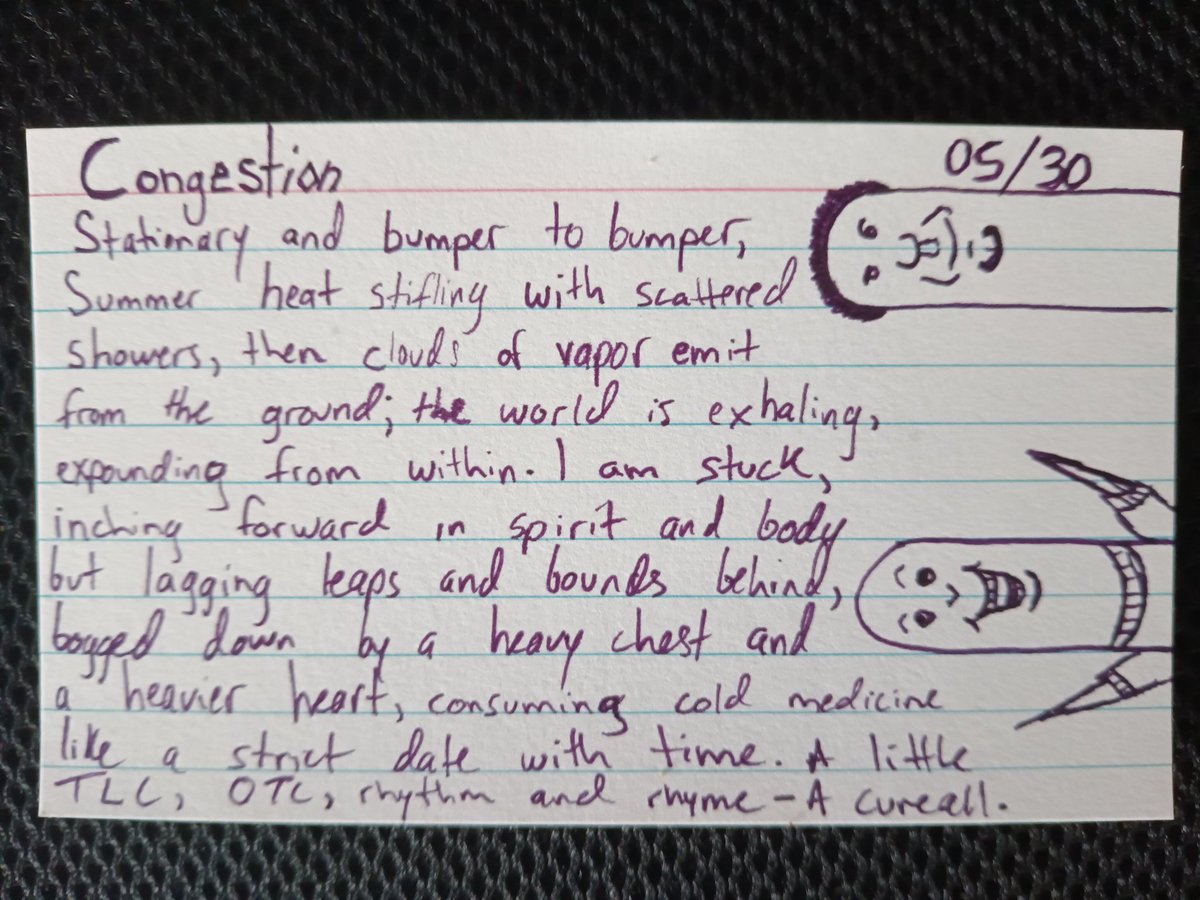 Congestion
05/30
Stationary and bumper to bumper,
Summer heat stifling with scattered
showers, then clouds of vapor emit
from the ground; the world is exhaling,
expounding from within. I am stuck,
inching forward in spirit and body
but lagging leaps and bounds behind,
bogged down by a heavy chest and
a heavier heart, consuming cold medicine
like a strict date with time. A little
TLC, OTC, rhythm and rhyme - A cureall.